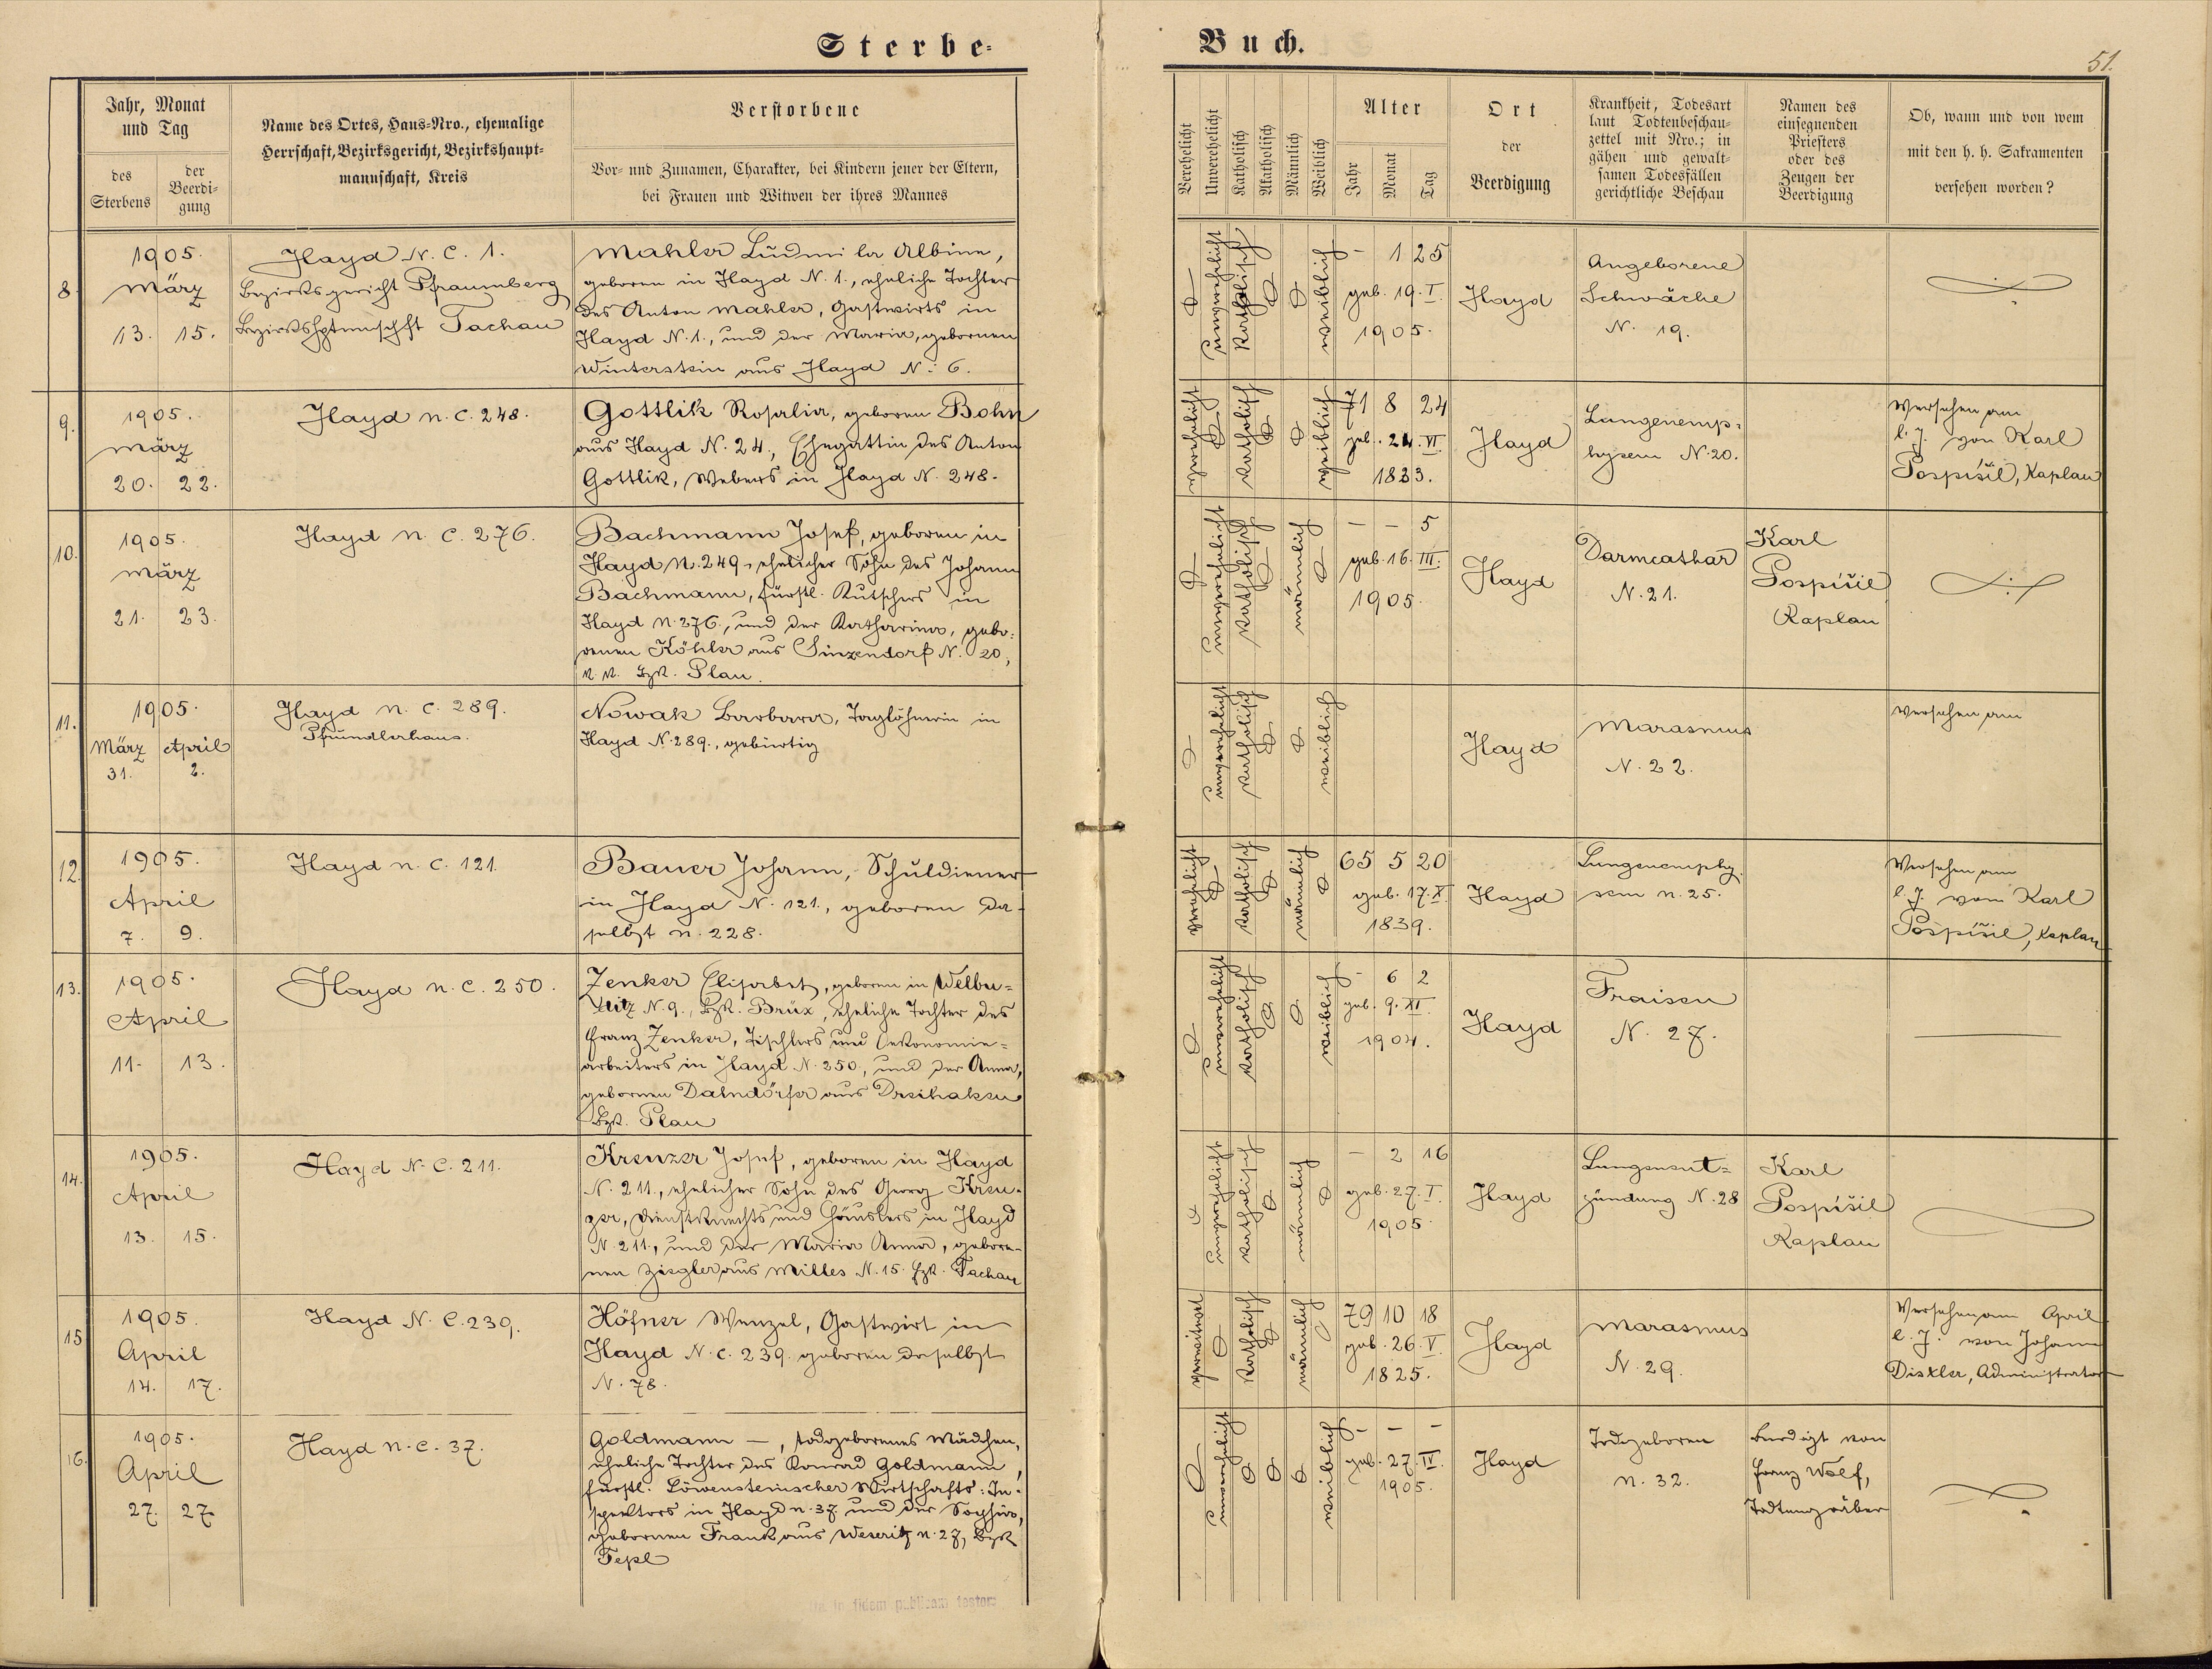 Sterbe-
Buch.
51.
Jahr, Monat
und Tag
des
Sterbens
der
Beerdi-
gung
Name des Ortes, Haus-Nro., ehemalige
Herrschaft, Bezirksgericht, Bezirkshaupt-
mannschaft, Kreis
Verstorbene
Vor- und Zunamen, Charakter, bei Kindern jener der Eltern,
bei Frauen und Witwen der ihres Mannes
Verehelicht
Unverehelicht
Katholisch
Akatholisch
Männlich
Weiblich
Alter
Jahr
Monat
Tag
Ort
der
Beerdigung
Krankheit, Todesart
laut Todtenbeschau-
zettel mit Nro.; in
gähen und gewalt-
samen Todesfällen
gerichtliche Beschau
Namen des
einsegnenden
Priesters
oder des
Zeugen der
Beerdigung
Ob, wann und von wem
mit den h. h. Sakramenten
versehen worden?
8.
1905.
März
13. 15.
Hayd N. C. 1.
Bezirksgericht Pfraumberg
Bezirkshptmnschft Tachau
Mahler Ludmila Albine,
geboren in Hayd N. 1., eheliche Tochter
des Anton Mahler, Gastwirts in
Hayd N. 1., und der Maria, gebornen
Winterstein aus Hayd N. 6.
unverehelicht
katholisch
weiblich
- 1 25
geb. 19. I.
1905.
Hayd
Angeborene
Schwäche
N. 19.
9.
1905.
März
20. 22.
Hayd n. C. 248.
Gottlik Rosalia, geboren Bohn
aus Hayd N. 24., Ehegattin des Anton
Gottlik, Webers in Hayd N. 248.
verehelicht
katholisch
weiblich
71 8 24
geb. 24. VI.
1833.
Hayd
Lungenemp-
hysem N. 20.
Versehen am
l. J. von Karl
Pospíšil, Kaplan
10.
1905.
März
21. 23.
Hayd n. C. 276.
Bachmann Josef, geboren in
Hayd N. 249, ehelicher Sohn des Johann
Bachmann, fürstl. Kutschers in
Hayd N. 276., und der Katharina, gebo-
renen Köhler aus Sinzendorf N. 20,
Bzk. Plan.
unverehelicht
katholisch
männlich
- - 5
geb. 16. III.
1905.
Hayd
Darmcathar
N. 21.
Karl
Pospíšil
Kaplan
11.
1905.
März April
31. 2.
Hayd n. C. 289.
Pfründlerhaus.
Nowak Barbara, Taglöhnerin in
Hayd N. 289., gebürtig
unverehelicht
katholisch
weiblich
Hayd
Marasmus
N. 22.
Versehen am
12.
1905.
April
7. 9.
Hayd n. C. 121.
Bauer Johann, Schuldiener
in Hayd N. 121., geboren da-
selbst n. 228.
verehelicht
katholisch
männlich
65 5 20
geb. 17. X.
1839.
Hayd
Lungenemphy-
sem n. 25.
Versehen am
l. J. vom Karl
Pospíšil, Kaplan
13.
1905.
April
11. 13.
Hayd n. C. 250.
Zenker Elisabet, geboren in Welbu-
ditz N. 9., Bzk. Brüx, eheliche Tochter des
Franz Zenker, Tischlers und Oekonomie-
arbeiters in Hayd N. 250, und der Anna,
gebornen Dalndörfer aus Dreihaken
Bzk. Plan
unverehelicht
katholisch
weiblich
- 6 2
geb. 9. XI.
1904.
Hayd
Fraisen
N. 27.
14.
1905.
April
13. 15.
Hayd N. C. 211.
Kreuzer Josef, geboren in Hayd
N. 211., ehelicher Sohn des Georg Kreu-
zer, Dienstknechts und Häuslers in Hayd
N. 211., und der Maria Anna, gebore-
nen Ziegler aus Milles N. 15. Bzk. Tachau
unverehelicht
katholisch
männlich
- 2 16
geb. 27. I.
1905.
Hayd
Lungenent-
zündung N. 28
Karl
Pospíšil
Kaplan
15
1905.
April
14. 17.
Hayd N. C. 239.
Höfner Wenzel, Gastwirt in
Hayd N. C. 239. geboren daselbst
N. 78.
verwitwet
katholisch
männlich
79 10 18
geb. 26. V.
1825.
Hayd
Marasmus
N. 29.
Versehen am April
l. J. von Johann
Distler, Administrator
16.
1905.
April
27. 27.
Hayd n. C. 37.
Goldmann —, todgeborenes Mädchen,
eheliche Tochter des Konrad Goldmann,
fürstl. Löwensteinischer Wirtschafts-In-
spektors in Hayd n. 37 und der Sophie,
gebornen Frank aus Weseritz n. 27, Bzk
Tepl
unverehelicht
weiblich
- - -
geb. 27. IV.
1905.
Hayd
Todgeboren
n. 32.
Beerdigt von
Franz Wolf,
Todtengräber
in fidem publicam testor: